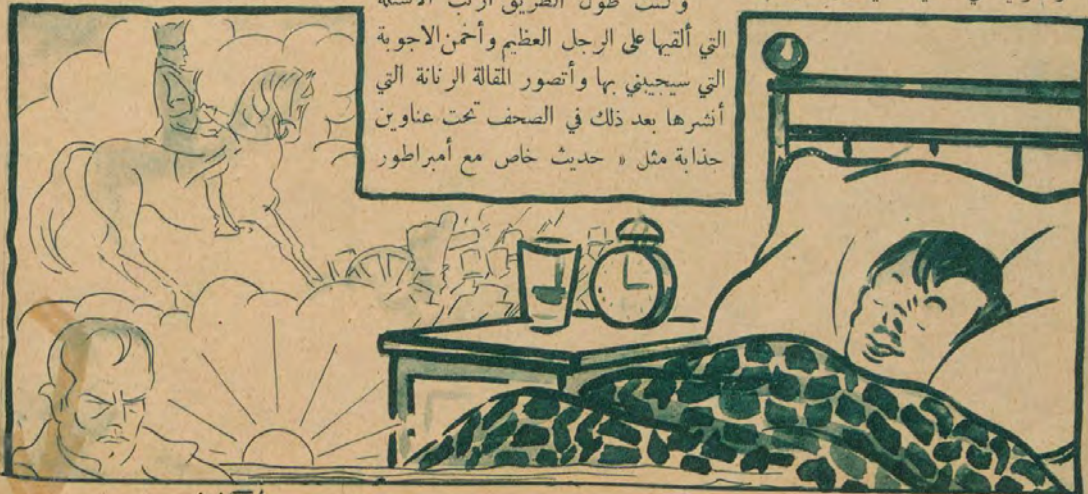 وكنت طول الطريق أرتب الاسئلة
التي ألقيها على الرجل العظيم وأخمن الاجوبة
التي سيجيبني بها وأتصور المقالة الرنانة التي
أنشرها بعد ذلك في الصحف تحت عناوين
جذابة مثل « حديث خاص مع أمبراطور